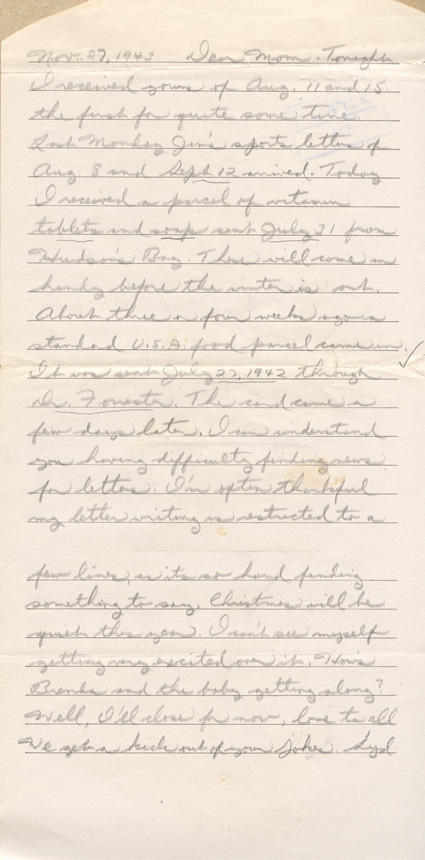 Nov. 27, 1943 Dear Mom. Tonight
I received yours of Aug. 11 and 15
the first for quite some time.
Last Monday Jim's sports letter of
Aug 8 and Sept 12 arrived. Today
I received a parcel of vitamin
tablets and soap sent July 31 from
Hudson's Bay. These will come in
handy before the winter is out.
About three or four weeks ago a
standard U.S.A. food parcel came in.
It was sent July 27, 1942 through
Dr. Forrester. The card came a
few days later. I can understand
you having difficulty finding news
for letters. I'm often thankful
my letter writing is restricted to a
few lines, as its so hard finding
something to say. Christmas will be
quiet this year. I can't see myself
getting very excited over it. How's
Brenda and the baby getting along?
Well, I'll close for now, love to all
We get a kick out of your jokes. Syd